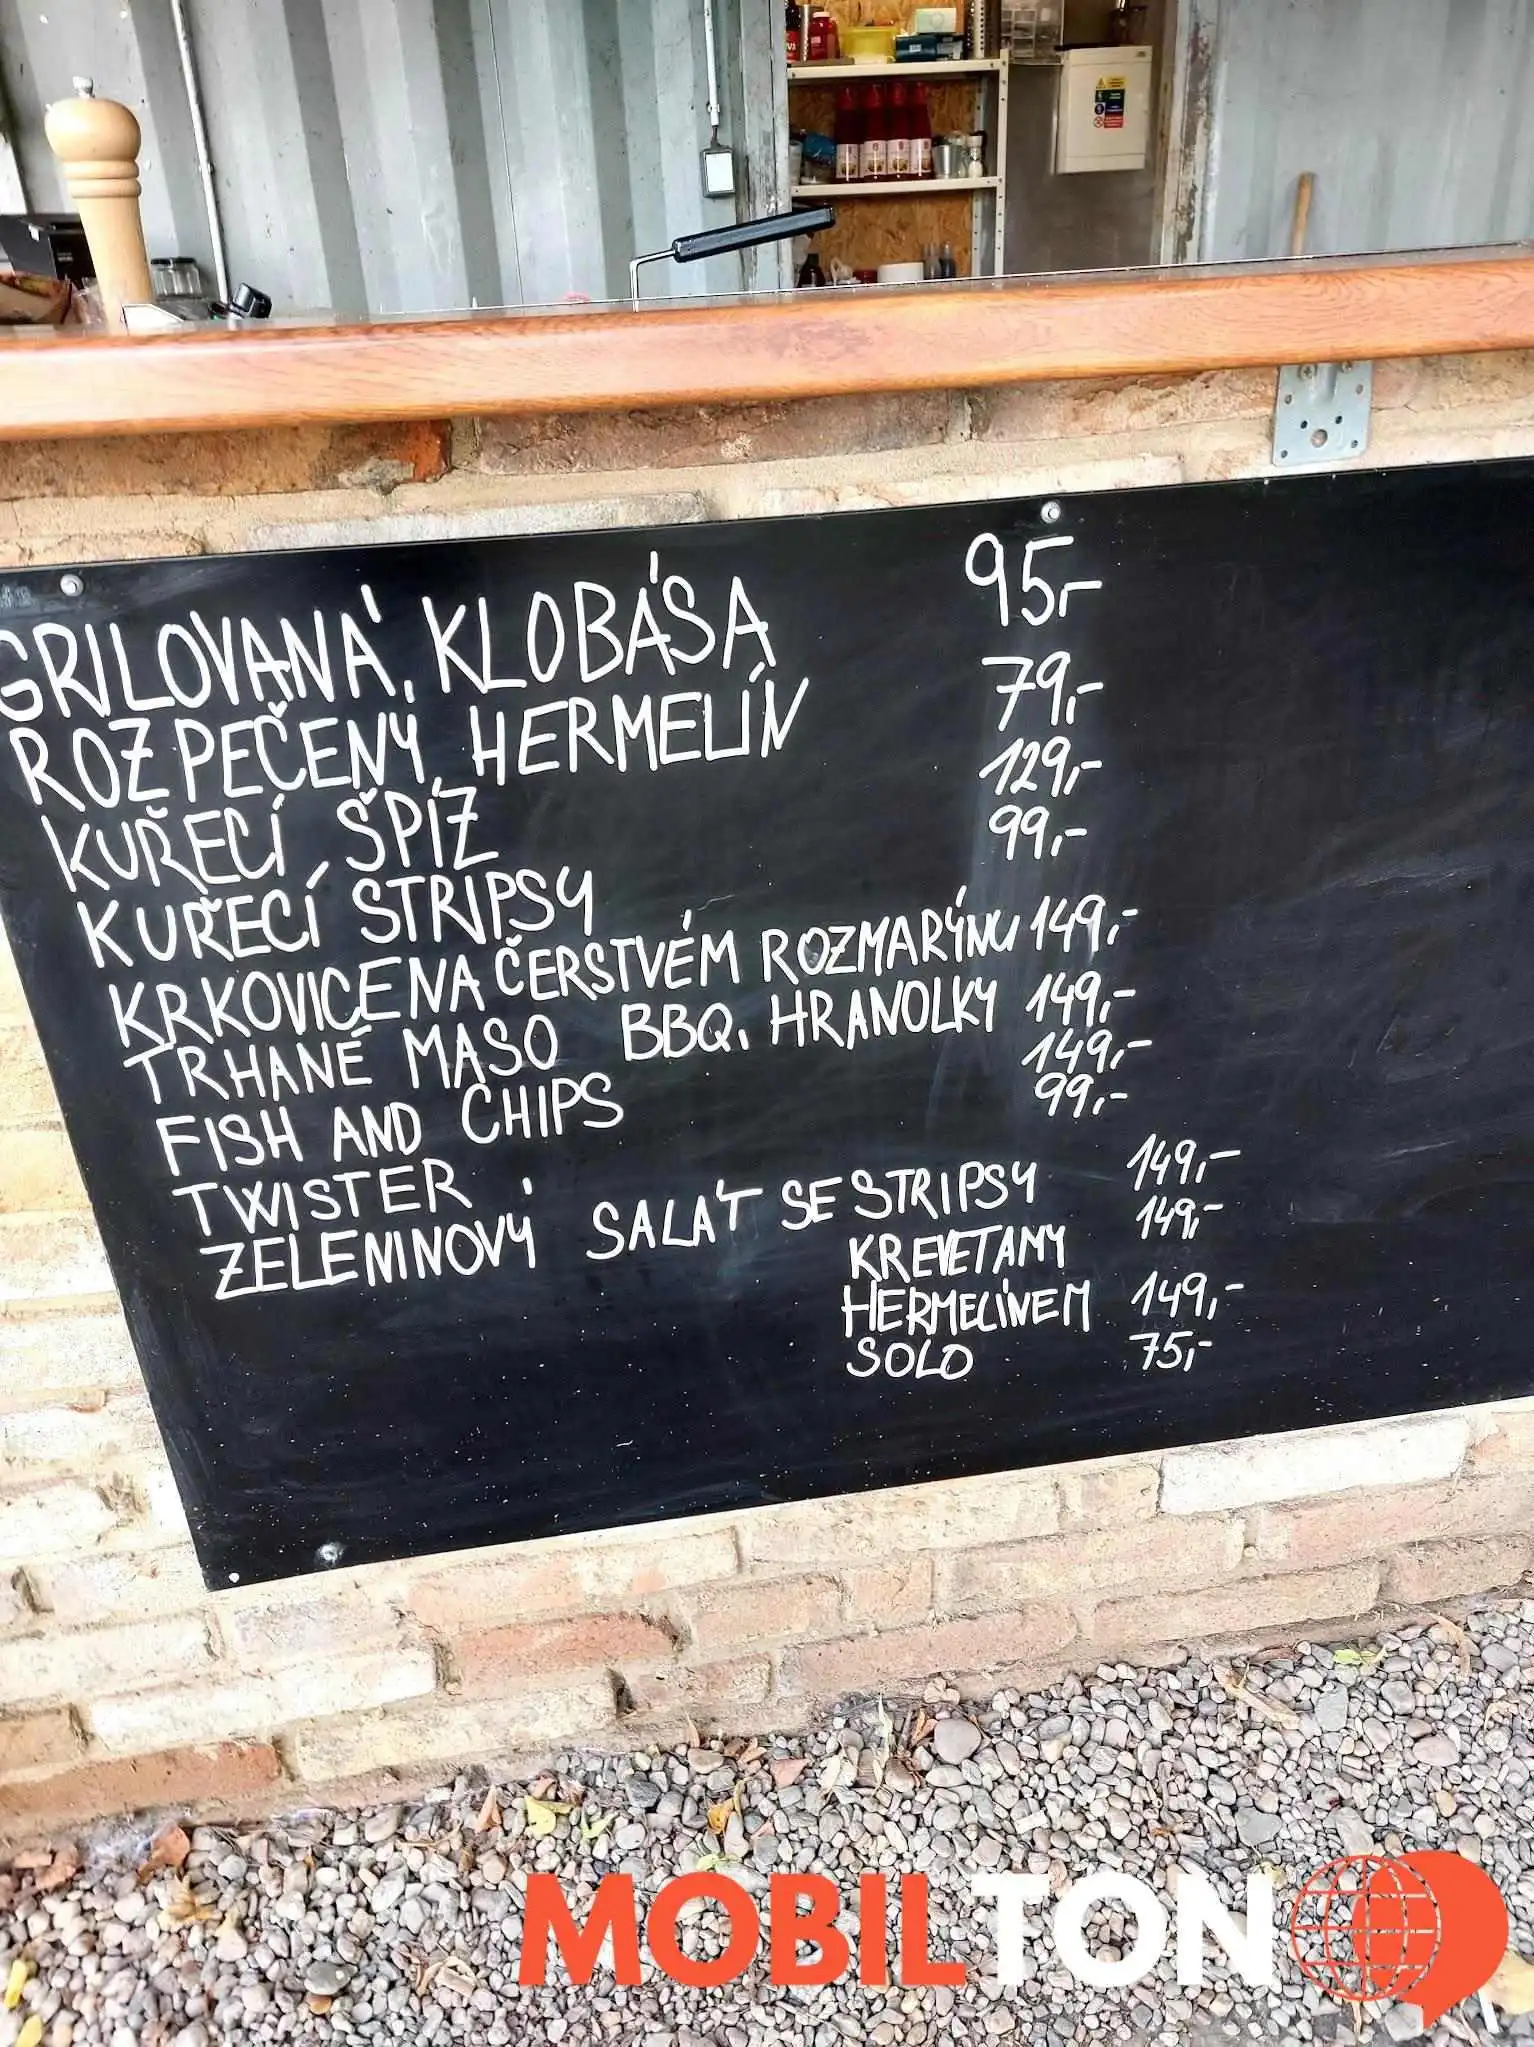 GRILOVANÁ KLOBÁSA 95,-
ROZPEČENÝ HERMELÍN 79,-
KUŘECÍ ŠPÍZ 129,-
KUŘECÍ STRIPSY 99,-
KRKOVICE NA ČERSTVÉM ROZMARÝNU 149,-
TRHANÉ MASO BBQ, HRANOLKY 149,-
FISH AND CHIPS 149,-
TWISTER 99,-
ZELENINOVÝ SALÁT SE STRIPSY 149,-
KREVETAMY 149,-
HERMELÍNEM 149,-
SOLO 75,-
MOBILTON